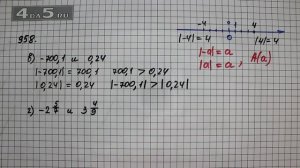 4 да 5.RU
958.
в) -700,1 и 0,24
|-700,1| = 700,1 700,1 > 0,24
|0,24| = 0,24 |-700,1| > |0,24|
г) -2
и 3 4/9
-4 0 1 4
|-4| = 4 |4| = 4
|-a| = a
|a| = a, A(a)